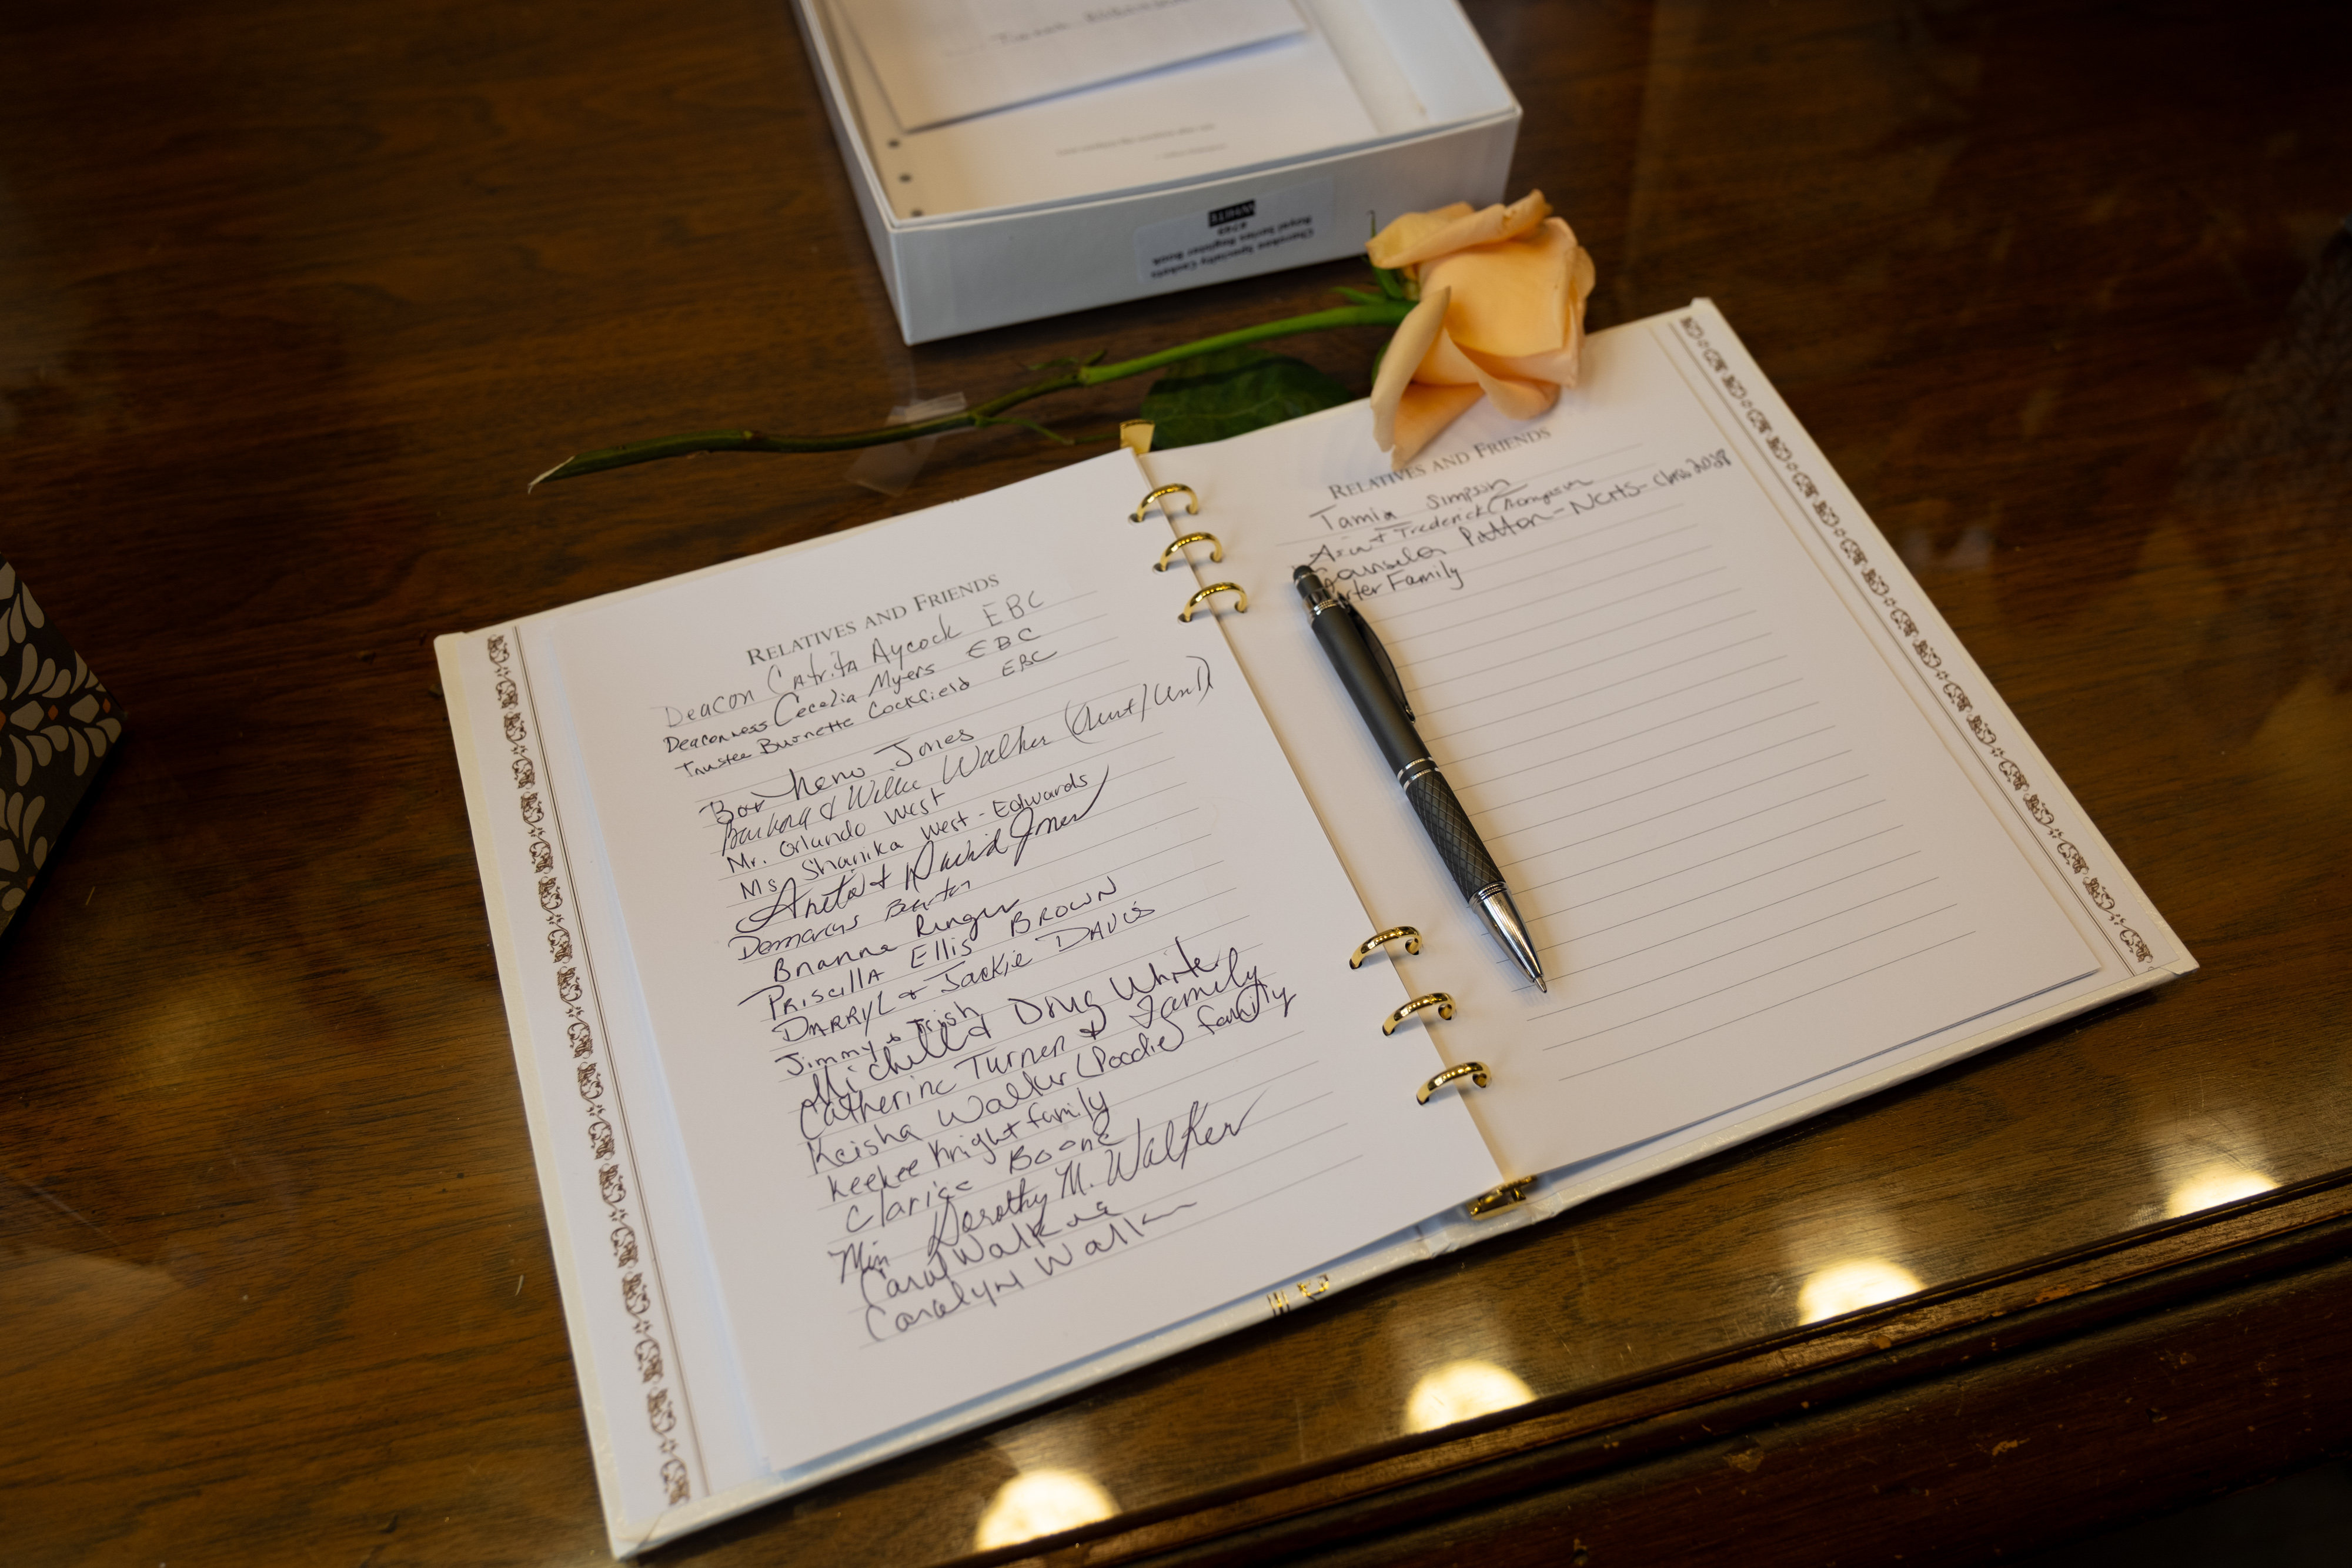 Cherokee Specialty Caskets
Royal Series Register Book
WHITE
RELATIVES AND FRIENDS
Deacon Catrita Aycock EBC
Deaconness Cecelia Myers EBC
Trustee Burnette Cockfield EBC
Jones
Barbara & Willie Walker (Aunt/Uncle)
Mr. Orlando West
Ms Shanika West-Edwards
Anita & David Jones
Demarcus
Brianna Ringer
Priscilla Ellis Brown
Darryl & Jackie Davis
Jimmy & Trish
Michelle & Doug White
Catherine Turner & Family
Keisha Walker (Poodie) family
Keekee Knight family
Clarice Boone
Min Dorothy M. Walker
Carol Walker
Carolyn Walker
RELATIVES AND FRIENDS
Tamia Simpson
Frederick Thompson
Counselor Patton-NCHS-Class 2028
Family